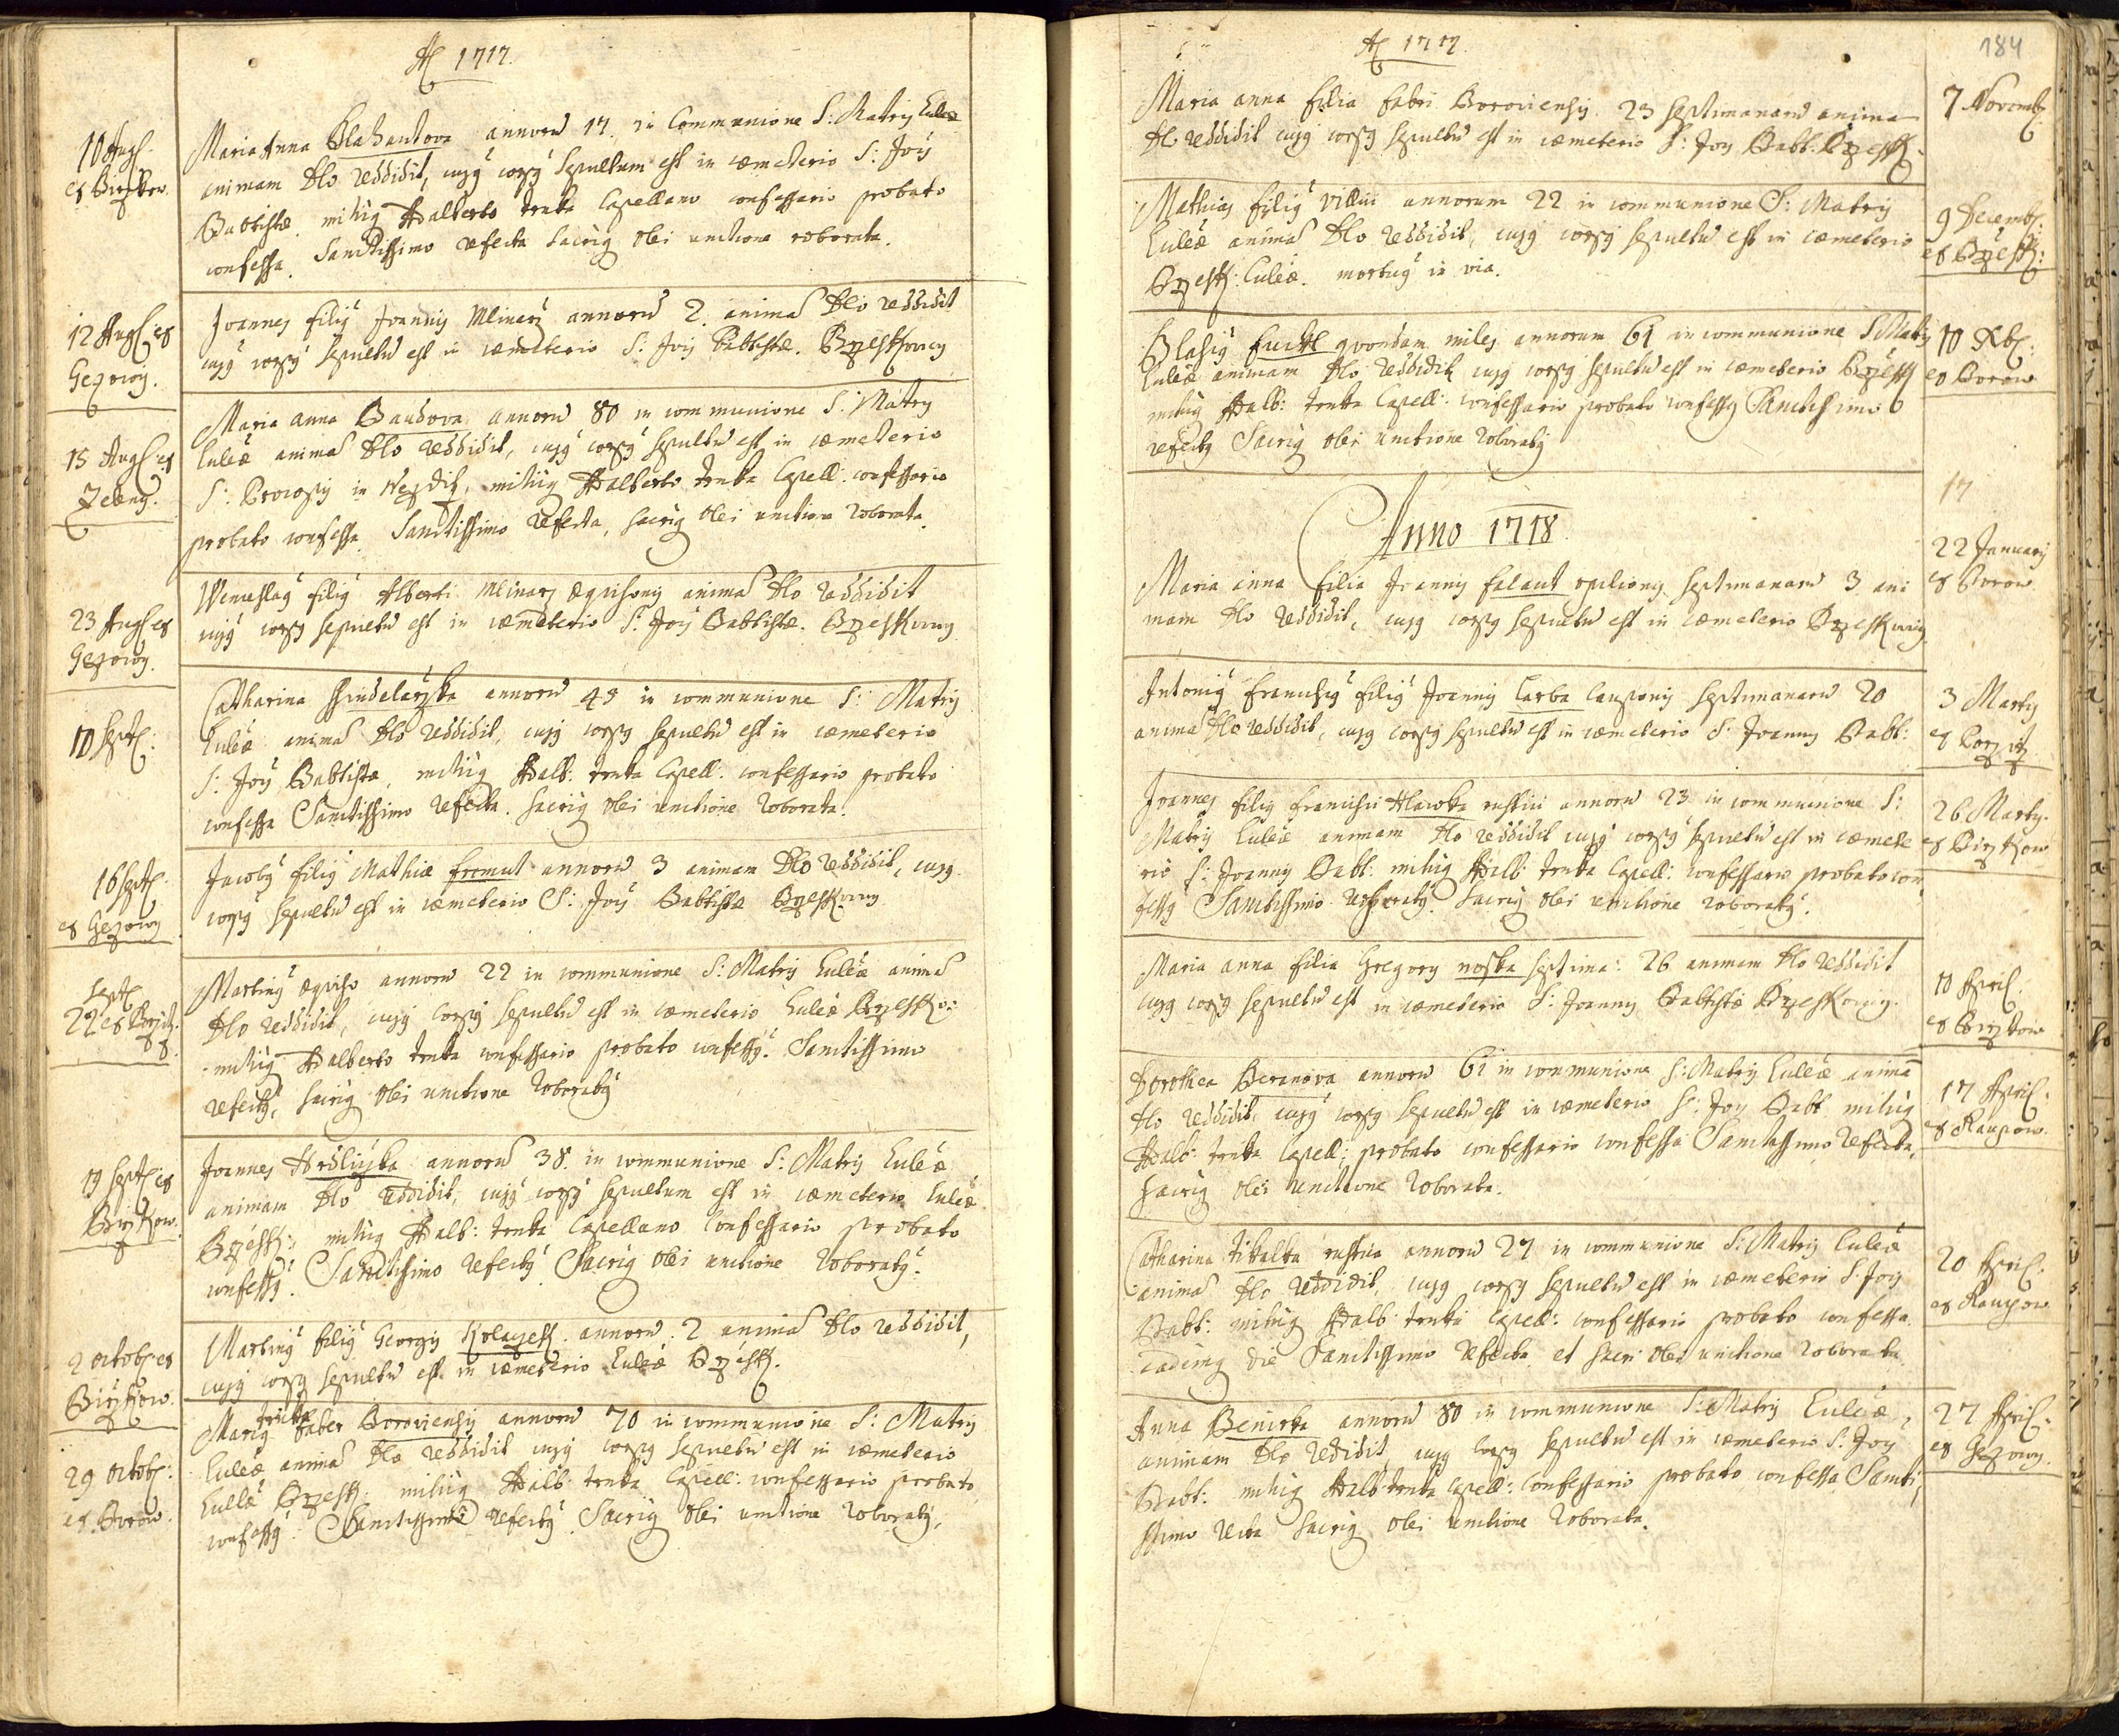 A 1717.
10 Aug.
ex Birzkow.
Maria Anna Blahautova annorũ 17. in Communione S: Matris Eccl͞æ
animam Dẽo reddidit, cujꝰ corpꝰ sepultum est in cæmeterio S: Jois
Babtistæ. mihiq Adalberto Trnka Capellano confessario probato
confessa. Sanctissimo refecta sacriq olei unctione roborata.
12 Aug: ex
Gezowy.
Joannes filiꝰ Joannis Mlinarz annorũ 2. animã Dẽo reddidit
cujꝰ corpꝰ sepultũ est in cæmeterio S: Jois Babtistæ. Brzeskowicz
15 Aug: ex
Zeleny.
Maria Anna Baudova annorũ 80 in communione S: Matris
Eccl͞æ animã Dẽo reddidit, cujꝰ corpꝰ sepultũ est in cæmeterio
S: Procopij in Nezditz, mihiq Adalberto Trnka Capell: confessario
probato confessa. Sanctissimo refecta, sacriq olei unctione roborata.
23 Aug: ex
Gezowy.
Wenceslaꝰ filiꝰ Alberti Mlinarz equisonis animã Dẽo reddidit
cujꝰ corpꝰ sepultũ est in cæmeterio S: Jois Babtistæ. Brzeskowicz
10 Sept:
Catharina Ssindelarzka annorũ 45 in communione S: Matris
Eccl͞æ animã Dẽo reddidit, cujꝰ corpꝰ sepultũ est in cæmeterio
S: Jois Babtistæ, mihiq Adalb: Trnka Capell: confessario probato
confessa Sanctissimo refecta. sacriq olei unctione roborata.
16 Sept:
ex Gezowy
Jacobꝰ filiꝰ Mathiæ Fremut annorũ 3 animam Dẽo reddidit, cujꝰ
corpꝰ sepultũ est in cæmeterio S: Jois Babtistæ Brzeskowicz
Sept:
22 ex Borzitz.
Martinꝰ equiso annorũ 22 in communione S: Matris Eccl͞æ animã
Dẽo reddidit, cujꝰ corpꝰ sepultũ est in cæmeterio Eccl͞æ Brzesko:
mihiq Adalberto Trnka confessario probato confessꝰ. Sanctissimo
refectꝰ, sacriq olei unctione roboratꝰ
19 Sept: ex
Birzkow.
Joannes Hrdliczka annorũ 38. in communione S: Matris Eccl͞æ
animam Dẽo reddidit, cujꝰ corpꝰ sepultum est in cæmeterio Eccl͞æ
Brzesk:, mihiq Adalb: Trnka Capellano confessario probato
confessꝰ. Sanctissimo refectꝰ Sacriq olei unctione roboratꝰ.
2 Octob: ex
Birzkow.
Martinꝰ filiꝰ Georgij Kolayezk. annorũ. 2 animã Dẽo reddidit,
cujꝰ corpꝰ sepultũ est in cæmeterio Eccl͞æ Brzesk.
29 Octob:
ex. Borow.
Trnka
Faber Boroviensis annorũ 70 in communione S: Matris
Eccl͞æ animã Dẽo reddidit cujꝰ corpꝰ sepultũ est in cæmeterio
Eccl͞æ Brzesk: mihiq Adalb: Trnka Capell: confessario probato
confessꝰ. Sanctissimo refectꝰ. Sacriq olei unctione roboratꝰ.
184
A 1717.
7 Novemb:
Maria Anna filia fabri Boroviensis. 23 septimanarũ animã
Dẽo reddidit cujꝰ corpꝰ sepultũ est in cæmeterio S: Jois Babt: Brzesk.
9 Decemb:
ex Brzesk:
Mathias filiꝰ villici annorum 22 in communione S: Matris
Eccl͞æ animã Dẽo reddidit, cujꝰ corpꝰ sepultũ est in cæmeterio
Brzesk: Eccl͞æ. mortuꝰ in via.
10 Xb:
ex Borow
Blasiꝰ quondam miles annorum 61 in communione S Matris
Eccl͞æ animam Dẽo reddidit, cujꝰ corpꝰ sepultũ est in cæmeterio Brzesk
mihiq Adalb: Trnka Capell: confessario probato confessꝰ Sanctissimo
refectꝰ Sacriq olei unctione roboratꝰ
17
Anno 1718
22 Januarij
ex Borow
Maria Anna filia Joannis Falaut opilionis septimanarũ 3. ani
mam Dẽo reddidit, cujꝰ corpꝰ sepultũ est in cæmeterio Brzeskowicz
3 Martij
ex Borzitz
Antoniꝰ Franciscꝰ filiꝰ Joannis Carba Cauponis septimanarũ 20
animã Dẽo reddidit, cujꝰ corpꝰ sepultũ est in cæmeterio S: Joannis Babt:
26 Martij.
ex Birzkow
Joannes filiꝰ Francisci Hlawka rustici annorũ 23 in communione S:
Matris Eccl͞æ animam Dẽo reddidit cujꝰ corpꝰ sepultũ est in cæmete
rio S: Joannis Babt: mihiq Adalb: Trnka Capell: confessario probato con
fessꝰ Sanctissimo refectꝰ. sacriq olei unctione roboratꝰ.
10 April:
ex Birzkow
Maria Anna filia Gregorij Noska septima: 26 animam Dẽo reddidit
cujꝰ corpꝰ sepultũ est in cæmeterio S: Joannis Babtistæ Brzeskowicz.
17 April:
ex Raupow.
Dorothea Beranova annorũ 61 in communione S: Matris Eccl͞æ animã
Dẽo reddidit, cujꝰ corpꝰ sepultũ est in cæmeterio S: Jois Babt: mihiq
Adalb: Trnka Capell: probato confessario confessa Sanctissimo refecta,
sacriq olei unctione roborata.
20 April:
ex Raupow
Catharina Tikalka rustica annorũ 27 in communione S: Matris Eccl͞æ
animã Dẽo reddidit, cujꝰ corpꝰ sepultũ est in cæmeterio S: Jois
Babt: mihiq Adalb: Trnka Capell: confessario probato confessa
eademq die Sanctissimo refecta et sacri olei unctione roborata
27 April:
ex Gezowy.
Anna Benirka annorũ 80 in communione S: Matris Eccl͞æ,
animam Dẽo redidit, cujꝰ corpꝰ sepultũ est in cæmeterio S: Jois
Babt: mihiq Adalb Trnka Capell: Confessario probato confessa Sancti,
ssimo recta sacriq olei unctione roborata.